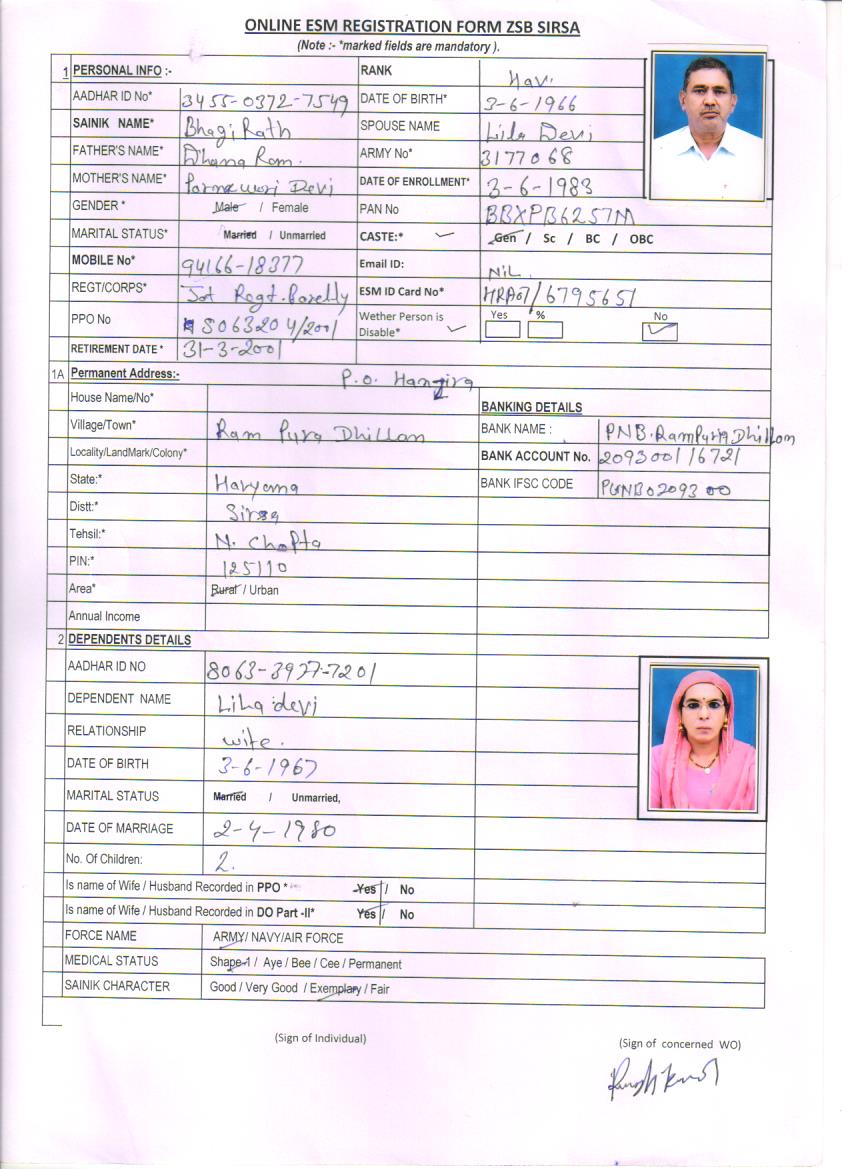 ONLINE ESM REGISTRATION FORM ZSB SIRSA
(Note :- *marked fields are mandatory ).
1 PERSONAL INFO :- RANK Hav.
AADHAR ID No* 3455-0372-7549 DATE OF BIRTH* 3-6-1966
SAINIK NAME* Bhagi Rath SPOUSE NAME Lila Devi
FATHER'S NAME* Dhana Ram. ARMY No* 3177068
MOTHER'S NAME* Devi DATE OF ENROLLMENT* 3-6-1983
GENDER * Male / Female PAN No BBXPB6257M
MARITAL STATUS* Married / Unmarried CASTE:* Gen / Sc / BC / OBC
MOBILE No* 94166-18377 Email ID: NiL.
REGT/CORPS* Jat Regt. Bareilly ESM ID Card No* HRA07/6795651
PPO No S063204/2001 Wether Person is Disable* Yes % No
RETIREMENT DATE * 31-3-2001
1A Permanent Address:- P.O. Hanjira
House Name/No* BANKING DETAILS
Village/Town* Ram Pura Dhillan BANK NAME : PNB. RamPura Dhillon
Locality/LandMark/Colony* BANK ACCOUNT No. 2093001116721
State:* Haryana BANK IFSC CODE PUNB0209300
Distt:* Sirsa
Tehsil:* N. Chopta
PIN:* 125110
Area* Rural / Urban
Annual Income
2 DEPENDENTS DETAILS
AADHAR ID NO 8063-3927-7201
DEPENDENT NAME Lila devi
RELATIONSHIP wife.
DATE OF BIRTH 3-6-1967
MARITAL STATUS Married / Unmarried,
DATE OF MARRIAGE 2-4-1980
No. Of Children: 2.
Is name of Wife / Husband Recorded in PPO * Yes / No
Is name of Wife / Husband Recorded in DO Part -II* Yes / No
FORCE NAME ARMY/ NAVY/AIR FORCE
MEDICAL STATUS Shape-1 / Aye / Bee / Cee / Permanent
SAINIK CHARACTER Good / Very Good / Exemplary / Fair
(Sign of Individual) (Sign of concerned WO)